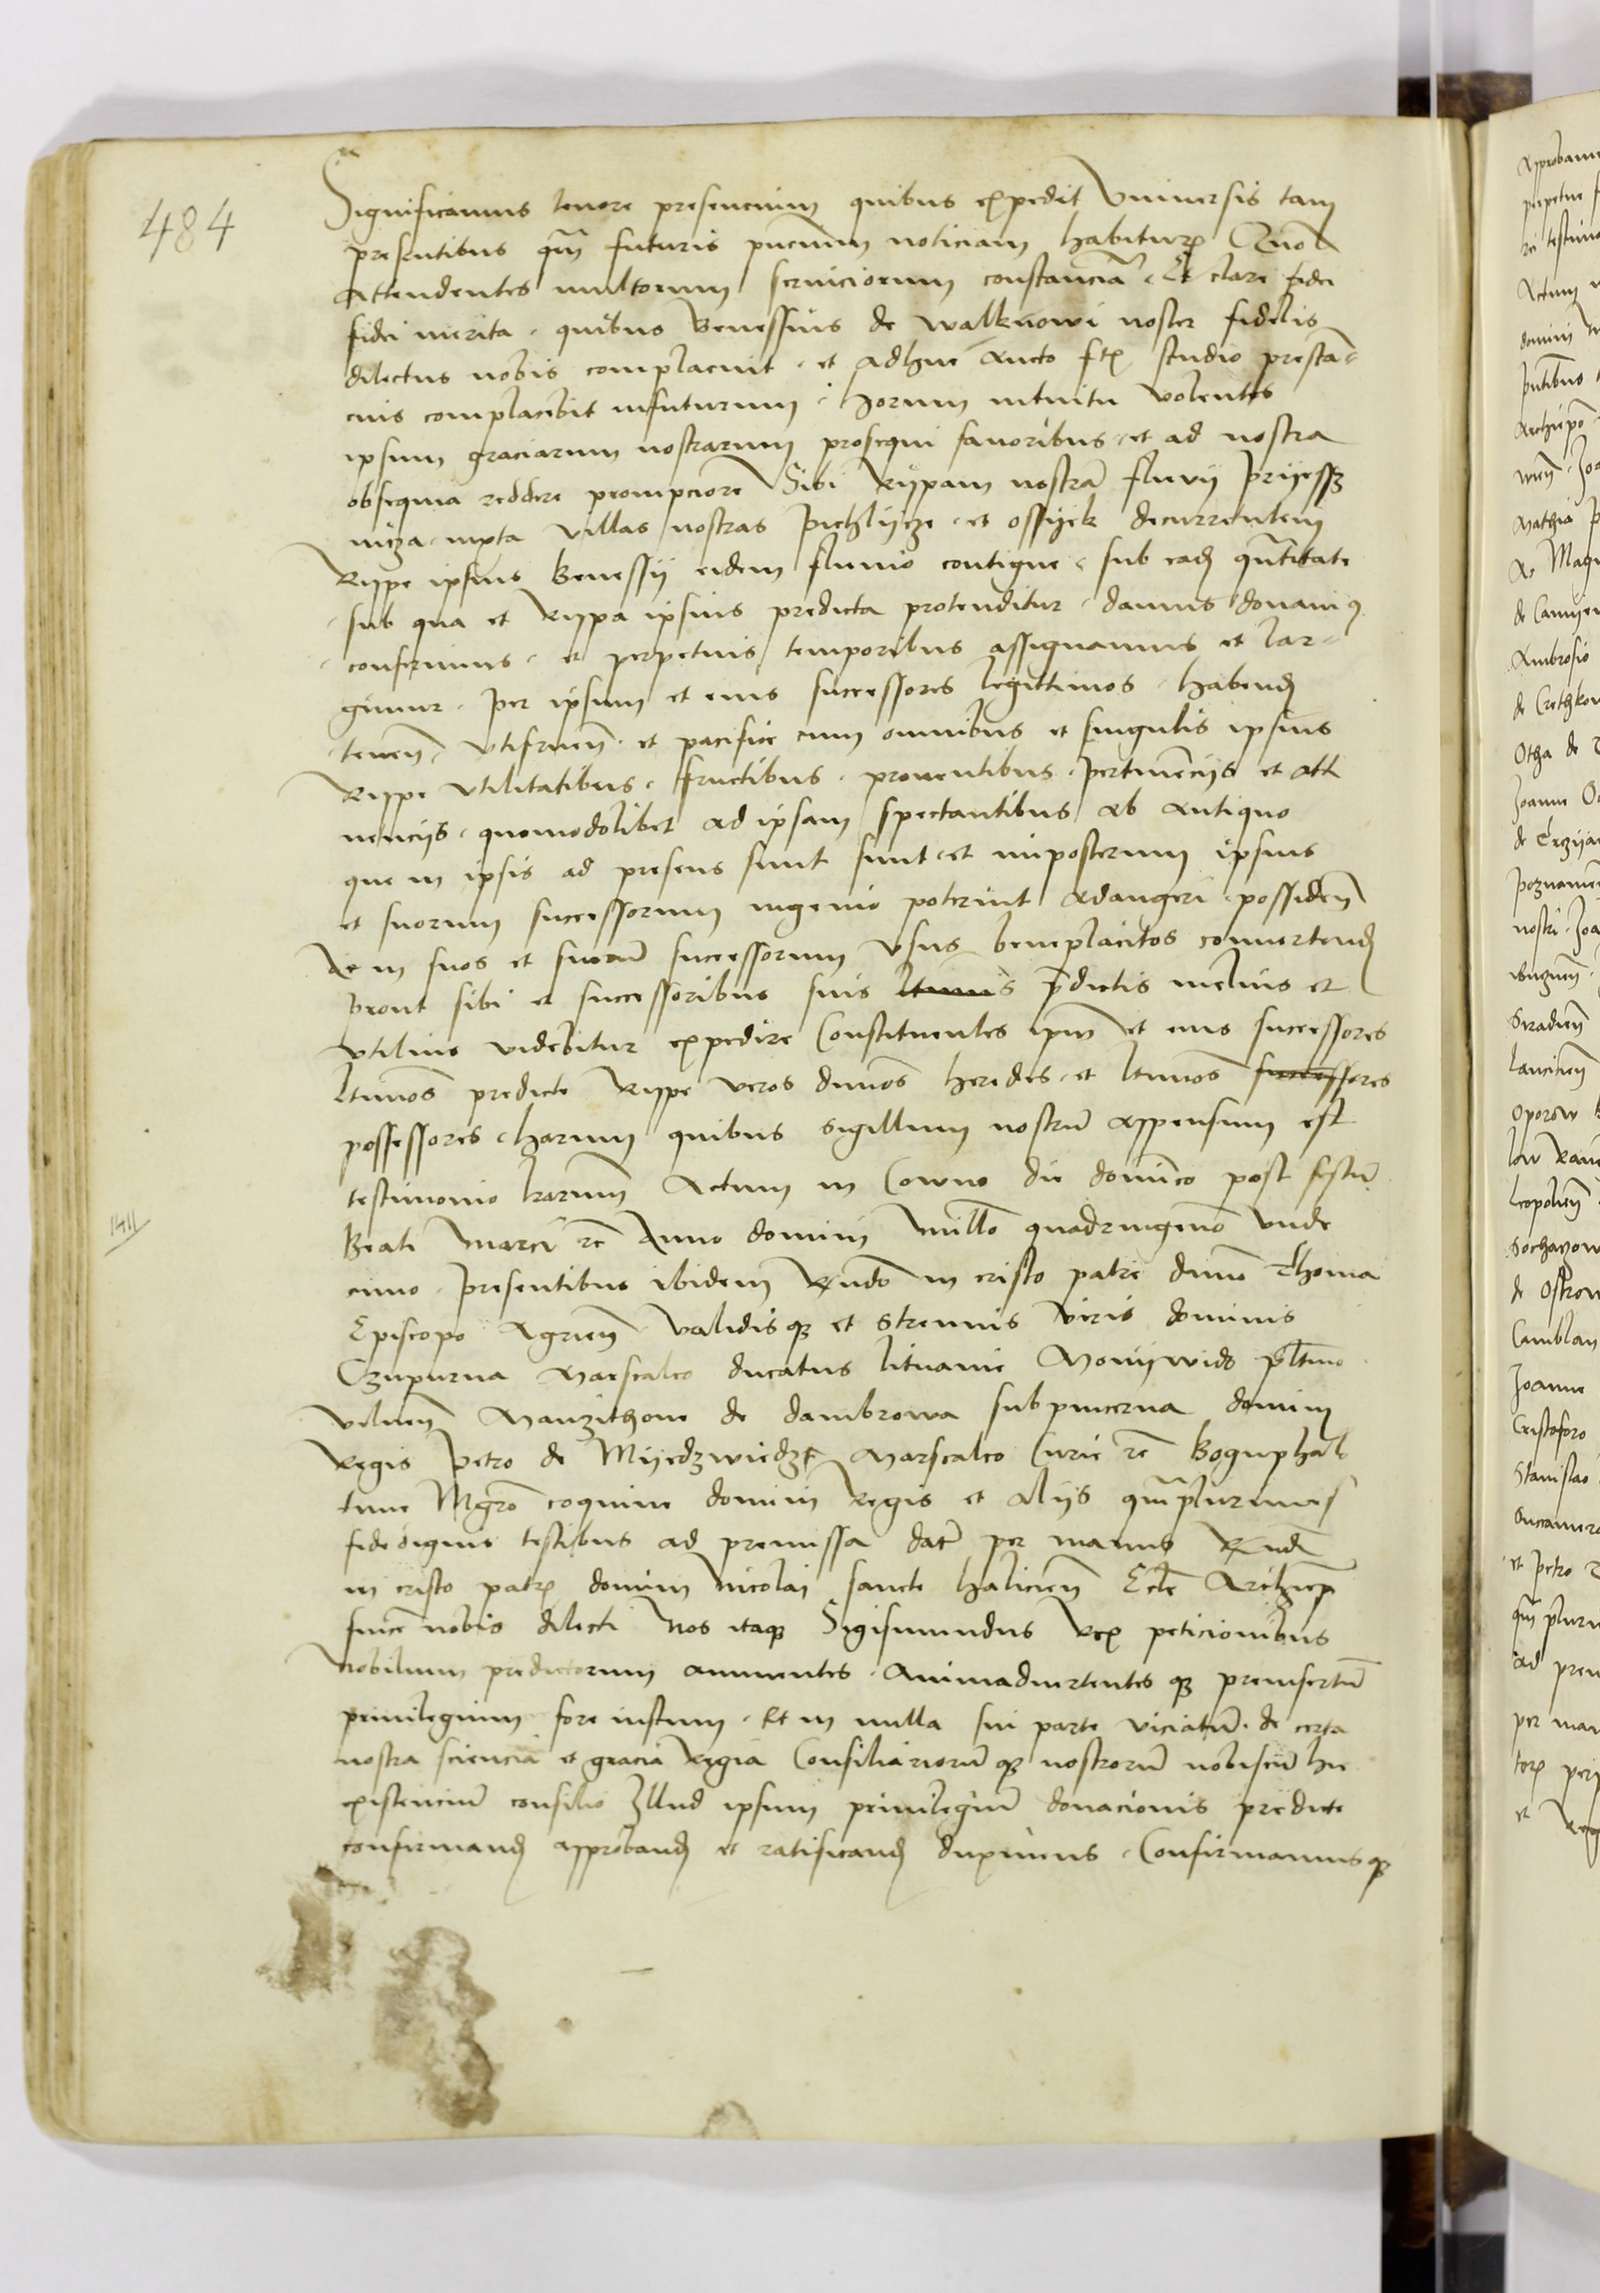 484
Significamus tenore presencium quibus expedit Vniuersis tam
presentibus qm̃ futuris pñcium noticiam habitur Quod
Attendentes multorum seruiciorum constanciã Et clare fidei
fidei merita quibus Benessius de Walknowi noster fidelis
dilectus nobis complacuit et adhuc aucto studio presta-
cius complacebit infuturum horum intuitu volentes
ipsum graciarum nostrarum prosequi fauoribus et ad nostra
obsequia reddere prompciorẽ Sibi Ryppam nostrã fluuy Pryessz
nicza iuxta villas nostras Pichlycze et ossyek decurrentem
Rippe ipsius Benessy eidem fluuio contigue sub ead qñtitate
sub qua et Ryppa ipsius predicta protenditur damus donamꝰ
conferimus et perpetuis temporibus assignamus et lar-
gimur per ipsum et eius successores legittimos habend
tenen̄ vtifruen̄ et pacifice cum omnibus et singulis ipsius
Rippe vtilitatibus fructibus prouentibus pertinencijs et atti
nencijs quomodolibet ad ipsam spectantibus ab antiquo
que in ipsis ad presens sunt sunt et imposterum ipsius
et suorum successorum ingenio poterint adaugeri possiden̄
Ac in suos et suorũ successorum vsus beneplacitos conuertend
prout sibi et successoribus suis ltimis p̃dictis melius et
vtilius videbitur expedire Constituentes ipm̃ et eius successores
ltimos predicte Rippe veros dn̄os heredes et ltimos successores
possessores harum quibus sigillum nostrũ appensum est
testimonio lrarum Actum in Cowno die dominico post festũ
Beati Marci rc̃ Anno domini Millo quadringen̄o vnde
cimo presentibus ibidem Rñdo in cristo patre dn̄o Thoma
Episcopo Agrien̄ validisqꝫ et strennis viris dominis
Czupurna Marscalco ducatus lituanie Monywido pltino
vilnen̄ Manzithone de dambrowa subpincerna domini
Regis Petro de Myedzwiedze Marscalco Curie rc̃ Boguphalo
tunc Mgro coquine domini Regis et alijs qm̃plurimis
fidedignis testibus ad premissa datũ per manus Rñd
in cristo patr domini Nicolai sancte halicien̄ Ecle Archiep̃
sincẽ nobis dilecti Nos itaqꝫ Sigismundus Rex peticionibus
Nobilium predictorum annuentes Animaduertentesqꝫ preinsertũ
priuilegium fore iustum Et in nulla sui parte viciatũ de certa
nostra sciencia et gracia Regia Consiliariorũqꝫ nostrorũ nobiscũ hic
existenciũ consilio Illud ipsum priuilegiũ donacionis predicte
confirmand approband et ratificand duximus Confirmamusqꝫ
1411